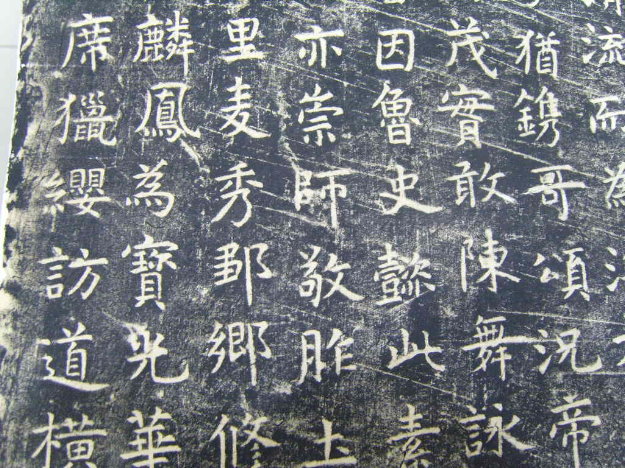 流而為
猶鐫哥頌況帝
茂實敢陳舞詠
因魯史懿此素
亦崇師敬胙土
里麦秀鄒鄉修
麟鳳為寶光華
席獵纓訪道橫